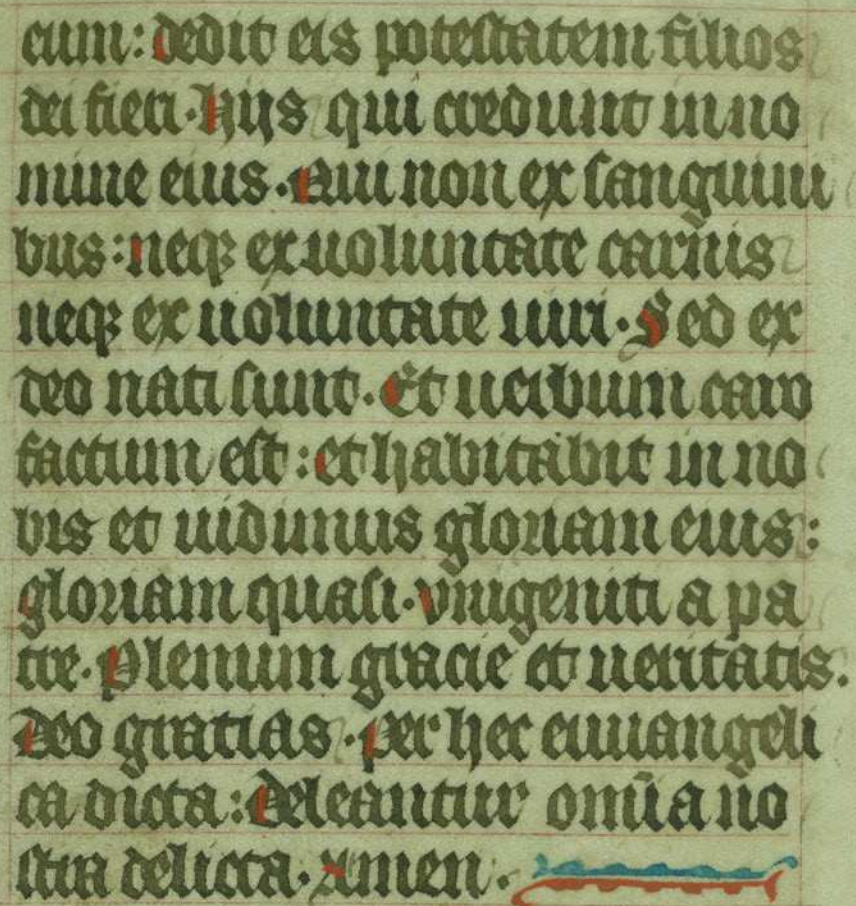 eum: dedit eis potestatem filios
dei fieri. hijs qui credunt in no
mine eius. Qui non ex sanguini
bus: neqꝫ ex uoluntate carnis
neqꝫ ex uoluntate uiri. Sed ex
deo nati sunt. Et uerbum caro
factum est: et habitabit in no
bis et uidimus gloriam eius:
gloriam quasi. vnigeniti a pa
tre. Plenum gracie et ueritatis.
Deo gratias. per hec euuangeli
ca dicta: Deleantur om̄ia no
stra delicta. Amen.